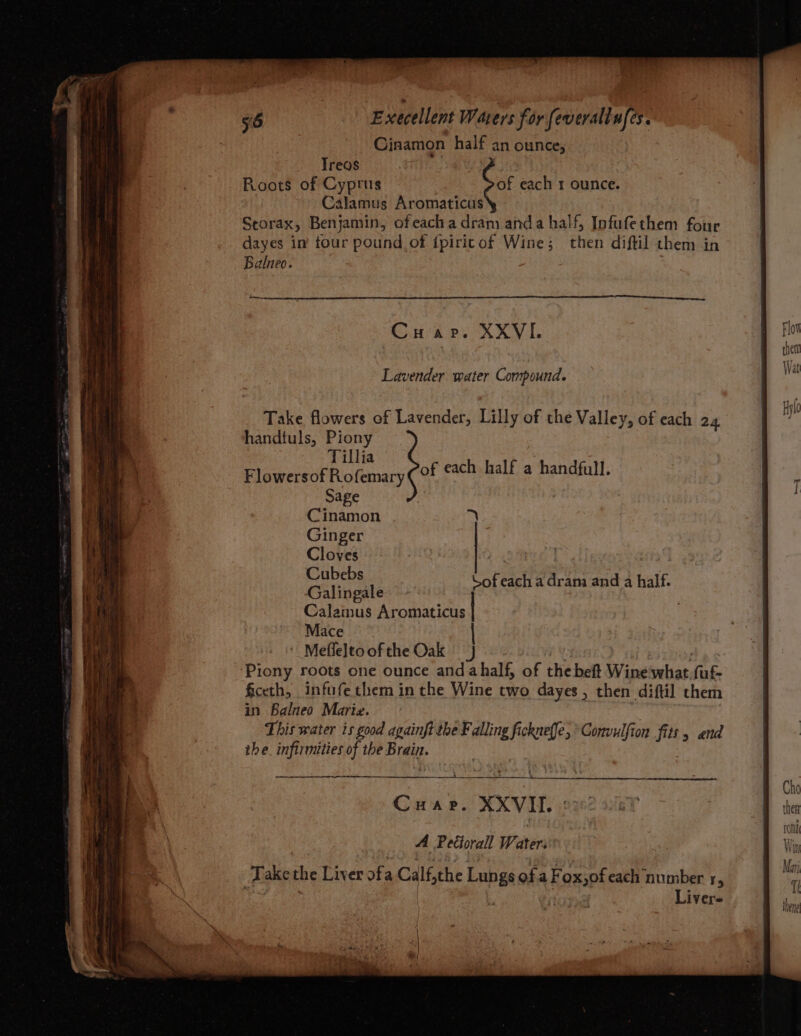 56 Execellent Waters for ſeverall uſes.
Cinamon half an ounce,
Ireos
Roots of Cyprus of each 1 ounce.
Calamus Aromaticus
Storax, Benjamin, of each a dram and a half, Infuſe them four
dayes in four pound of ſpirit of Wine; then diſtil them in
Balneo.
CHAP. XXVI.
Lavender water Compound.
Take flowers of Lavender, Lilly of the Valley, of each 24
handfuls, Piony
Tillia
Flowers of Roſemary of each half a handfull.
Sage
Cinamon
Ginger
Cloves
Cubebs of each a dram and a half.
Galingale
Calamus Aromaticus
Mace
Meſſelto of the Oak
Piony roots one ounce and a half, of the beſt Wine what ſuf-
ficeth, infuſe them in the Wine two dayes, then diſtil them
in Balneo Mariæ.
This water is good againſt the Falling ſickneſſe, Convulſion fits, and
the infirmities of the Brain.
CHAP. XXVII.
A Pectorall Water.
Take the Liver of a Calf, the Lungs of a Fox, of each number 1,
Liver-
Flow
them
Wat
Hyſo
T
Cho
them
Win
Mari